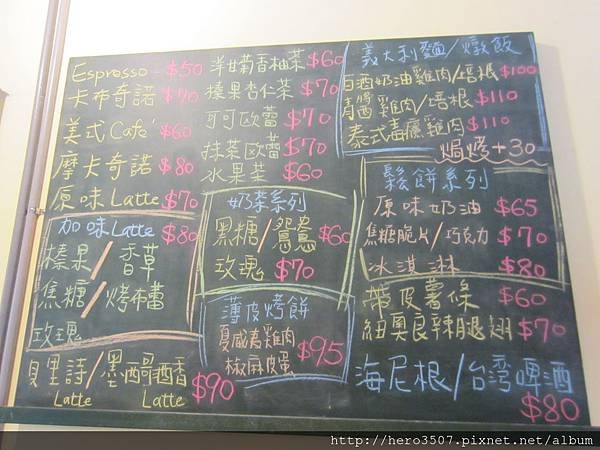 Espresso $50
卡布奇諾 $70
美式Cafe' $60
摩卡奇諾 $80
原味Latte $70
加味Latte $80
榛果/香草
焦糖/烤布蕾
玫瑰
貝里詩/墨西哥酒香
Latte Latte $90
洋甘菊香柚茶 $60
榛果杏仁茶 $70
可可歐蕾 $70
抹茶歐蕾 $70
水果茶 $60
奶茶系列
黑糖/鴛鴦 $60
玫瑰 $70
薄皮烤餅
夏威夷雞肉
椒麻皮蛋 $95
義大利麵/燉飯
白酒奶油雞肉/培根 $100
青醬雞肉/培根 $110
泰式酸辣雞肉 $110
焗烤+30
鬆餅系列
原味奶油 $65
焦糖脆片/巧克力 $70
冰淇淋 $80
帶皮薯條 $60
紐奧良辣腿翅 $70
海尼根/台灣啤酒
$80
http://hero3507.pixnet.net/album